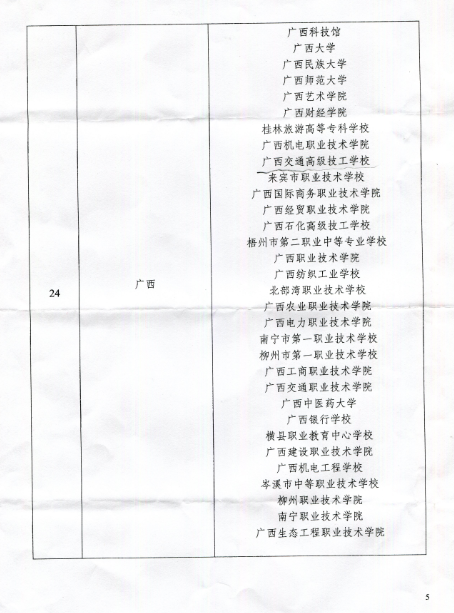 广西科技馆
广西大学
广西民族大学
广西师范大学
广西艺术学院
广西财经学院
桂林旅游高等专科学校
广西机电职业技术学院
广西交通高级技工学校
来宾市职业技术学校
广西国际商务职业技术学院
广西经贸职业技术学院
广西石化高级技工学校
梧州市第二职业中等专业学校
广西职业技术学院
广西纺织工业学校
24
广西
北部湾职业技术学校
广西农业职业技术学院
广西电力职业技术学院
南宁市第一职业技术学校
柳州市第一职业技术学校
广西工商职业技术学院
广西交通职业技术学院
广西中医药大学
广西银行学校
横县职业教育中心学校
广西建设职业技术学院
广西机电工程学校
岑溪市中等职业技术学校
柳州职业技术学院
南宁职业技术学院
广西生态工程职业技术学院
5